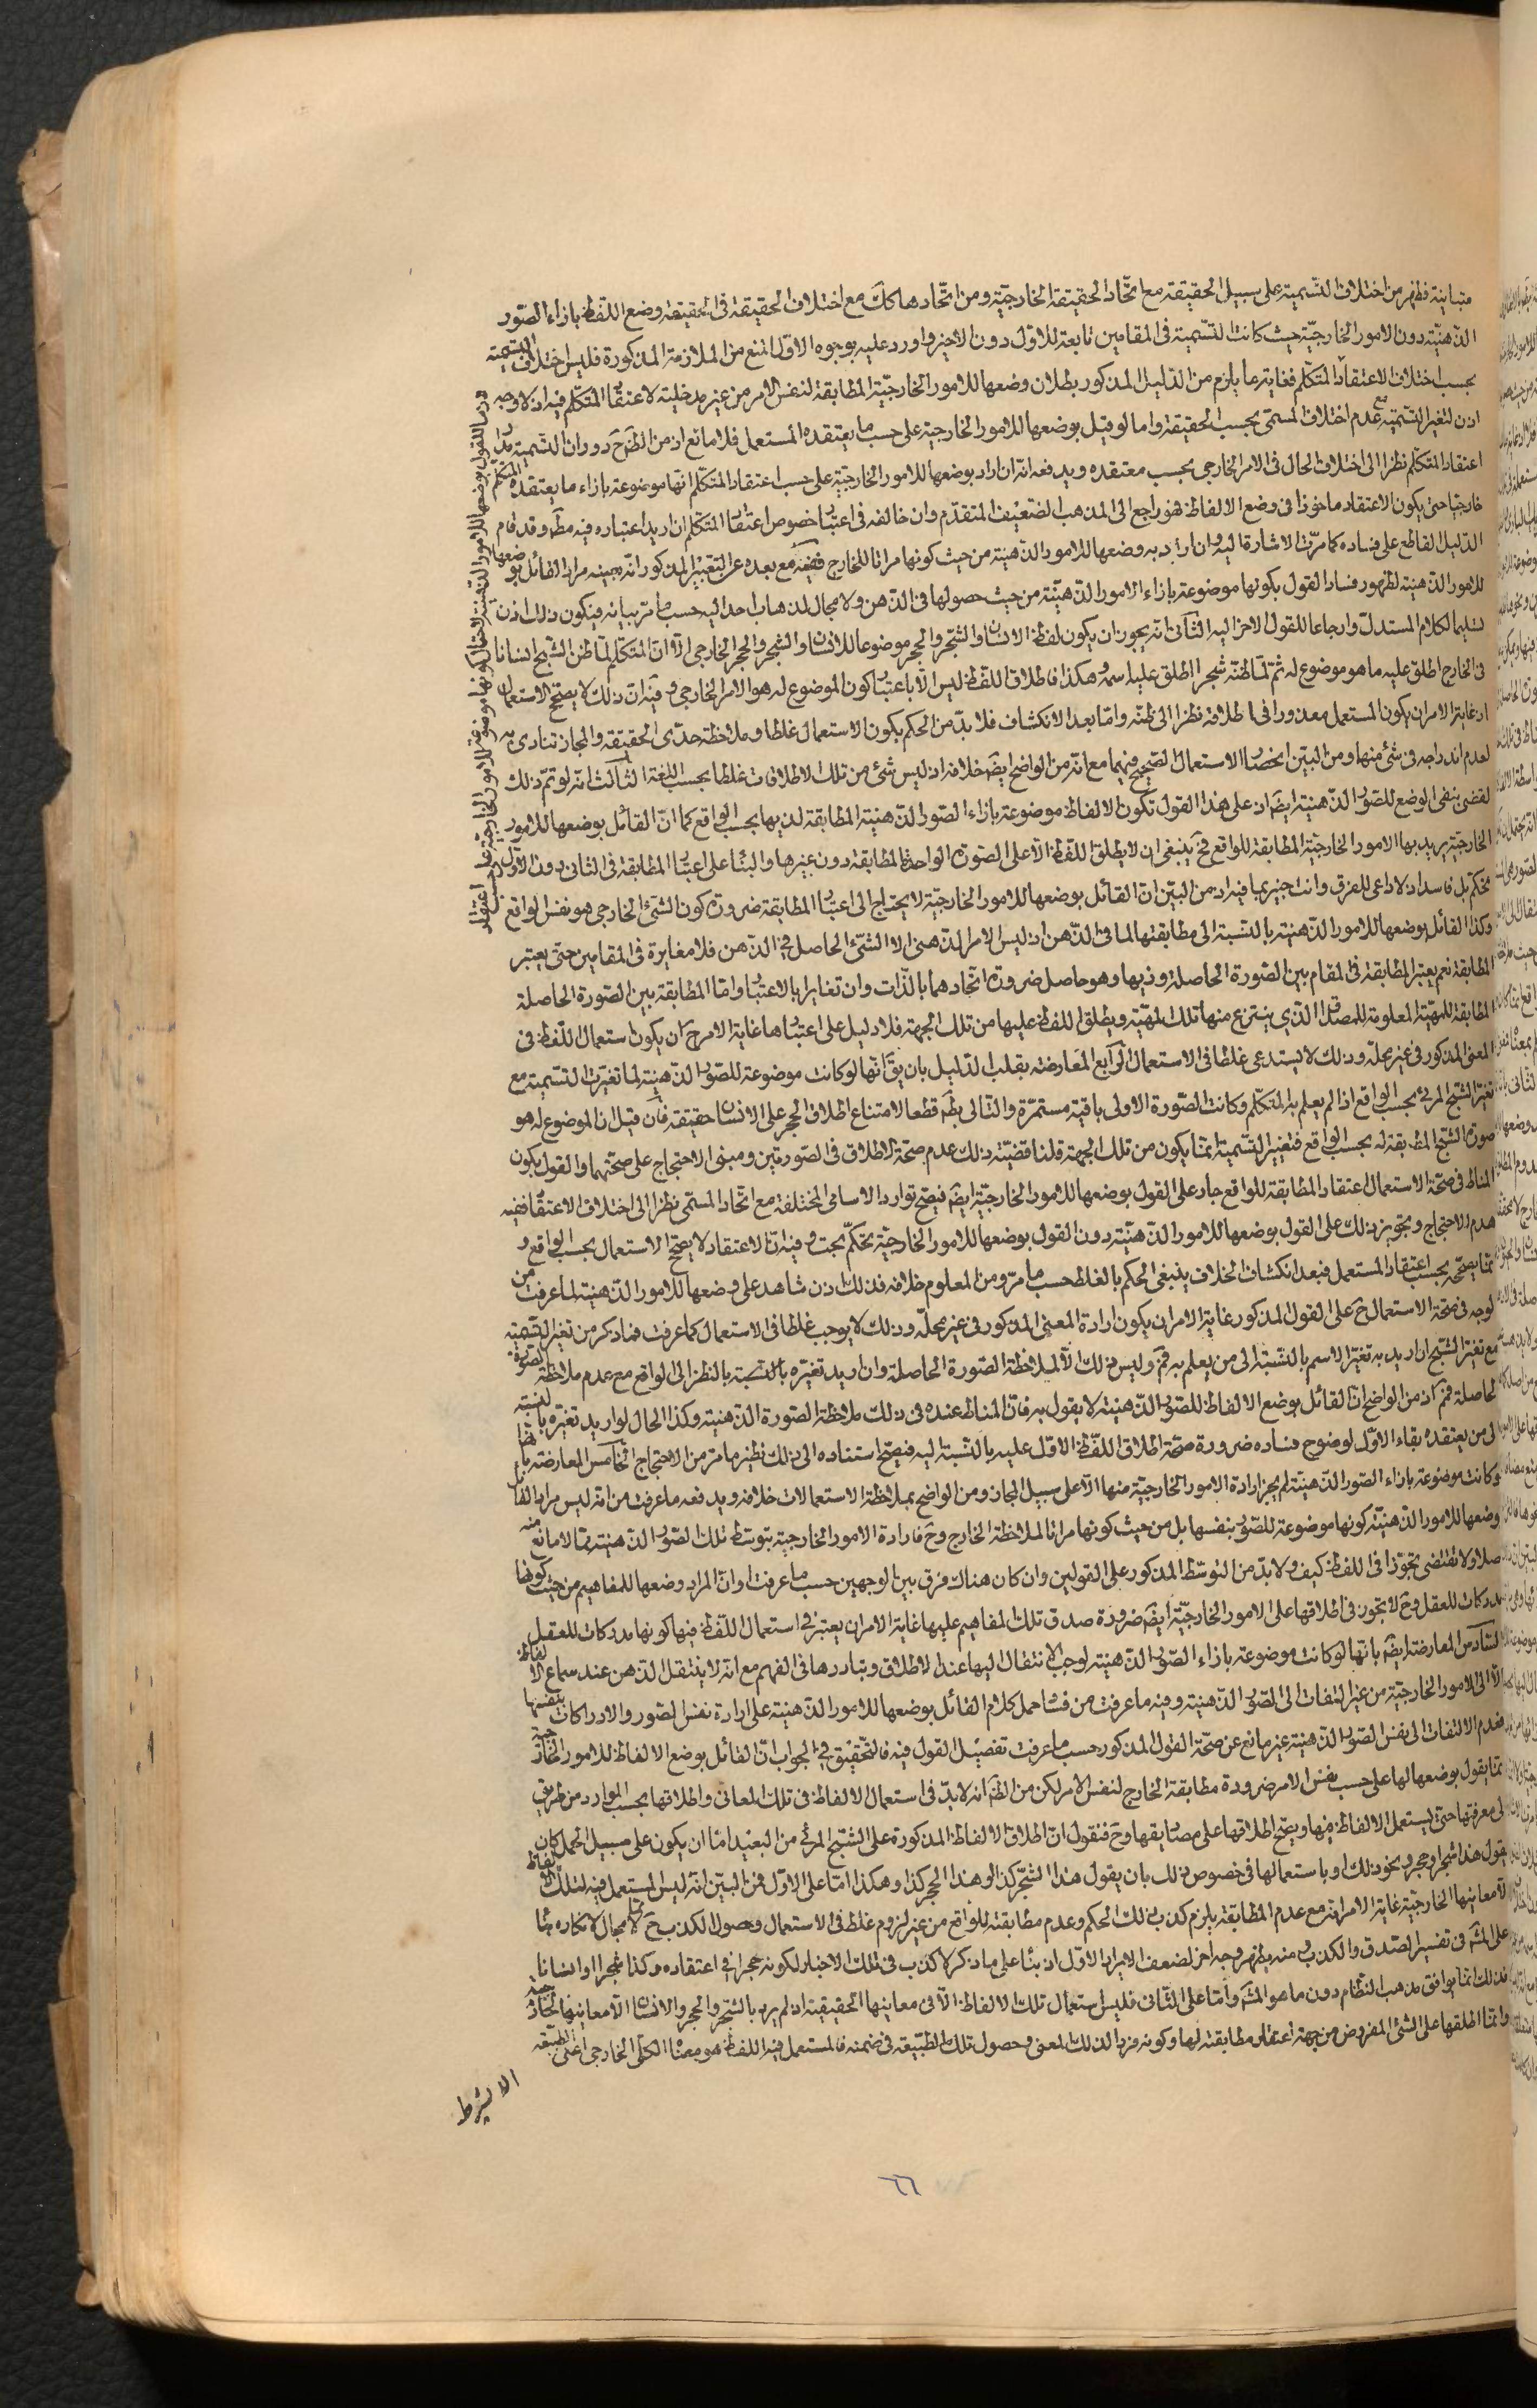 متباينة فظهر من اختلاف التسمية على سبيل الحقيقة مع اتّحاد الحقيقة الخارجيّة ومن اتّحادها كك مع اختلاف الحقيقة فى الحقيقة وضع اللفظ بازاء الصّور
الذّهنيّة دون الامور الخارجيّة حيث كانت التّسمية فى المقامين تابعة للاوّل دون الاخير واورد عليه بوجوه الاوّل المنع من الملازمة المذكورة فليس اختلاف التسمية
بحسب اختلاف الاعتقاد المتكلّم فغاية ما يلزم من الدّليل المذكور بطلان وضعها للامور الخارجيّة المطابقة لنفس الامر من غير مدخلية لاعتقاد المتكلّم فيه اذ لا وجه
اذن لتغير التّسمية مع عدم اختلاف المسمّى بحسب الحقيقة واما لو قيل بوضعها للامور الخارجية على حسب ما يعتقده المستعمل فلا مانع اذ من الظّ ح دوران التّسمية مدار
اعتقاد المتكلّم نظرا الى اختلاف الحال فى الامر الخارجى بحسب معتقده ويدفعه انّه ان اراد بوضعها للامور الخارجيّة على حسب اعتقاد المتكلّم انّها موضوعة بازاء ما يعتقده المتكلّم
خارجيّا حتى يكون الاعتقاد ماخوذا فى وضع الالفاظ فهو راجع الى المذهب الضعيف المتقدّم وان خالفه فى اعتبار خصوص اعتقاد المتكلّم ان اريد اعتباره فيه مط وقد قام
الدّليل القاطع على فساده كما مرّت الاشارة اليه وان اراد به وضعها للامور الذّهنيّة من حيث كونها مراتا للخارج ففيه مع بعده عن التّعبير المذكور انّه بعينه مراد القائل بوضعها
للامور الذّهنية لظهور فساد القول بكونها موضوعة بازاء الامور الذّهنيّة من حيث حصولها فى الذّهن ولا مجال لذهاب احد اليه حسب ما مرّ بيانه فيكون ذلك اذن
تسليما لكلام المستدلّ وارجاعا للقول الاخر اليه الثّانى انّه يجوز ان يكون لفظ الانسان والشّجر والحجر موضوعا للانسان والشّجر والحجر الخارجى الّا انّ المتكلّم لمّا ظنّ الشّبح انسانا
فى الخارج اطلق عليه ما هو موضوع له ثم لمّا ظنّه شجرا اطلق عليه اسمه وهكذا فاطلاق اللّفظ ليس الّا باعتبار كون الموضوع له هو الامر الخارجى وفيه انّ ذلك لا يصحّح الاستعمال
اذ غاية الامر ان يكون المستعمل معذورا فى اطلاقه نظرا الى ظنّه وامّا بعد الانكشاف فلا بدّ من الحكم بكون الاستعمال غلطا وملاحظة حدّى الحقيقة والمجاز تنادى به
لعدم اندراجه فى شئ منها ومن البيّن انحصار الاستعمال الصّحيح فيهما مع انّه من الواضح ايضَ خلافه اذ ليس شئ من تلك الاطلاقات غلطا بحسب اللغة الثّالث انّه لو تمّ ذلك
لقضى بنفى الوضع للصّور الذّهنيّة ايضَ اذ على هذا القول تكون الالفاظ موضوعة بازاء الصّور الذّهنية المطابقة لذيها بحسب الواقع كما انّ القائل بوضعها للامور
الخارجيّة يريد بها الامور الخارجيّة المطابقة للواقع فح ينبغى ان لا يطلق اللّفظ الّا على الصّورة الواحدة المطابقة دون غيرها والبناء على اعتبار المطابقة فى الثّانى دون الاوّل
تحكم بل فاسد اذ لا داعى للفرق وانت خبير بما فيه اذ من البيّن انّ القائل بوضعها للامور الخارجيّة لا يحتاج الى اعتبار المطابقة ضرورة كون الشئ الخارجى هو نفس الواقع
وكذا القائل بوضعها للامور الذّهنيّة بالنّسبة الى مطابقتها لما فى الذّهن اذ ليس الامر الذّهنى الا الشّئ الحاصل فى الذّهن فلا مغايرة فى المقامين حتى يعتبر
المطابقة نعم يعتبر المطابقة فى المقام بين الصّورة الحاصلة وذيها وهو حاصل ضرورة اتّحادهما بالذّات وان تغايرا بالاعتبار وامّا المطابقة بين الصّورة الحاصلة
المطابقة للمهيّة المعلومة للمصداق الّذى ينتزع منها تلك المهيّة ويطلق اللفظ عليها من تلك الجهة فلا دليل على اعتبارها غاية الامر ح ان يكون استعمال اللّفظ فى
المعنى المذكور فى غير محلّه وذلك لا يستدعى غلطا فى الاستعمال الرّابع المعارضة بقلب الدّليل بان يقَ انّها لو كانت موضوعة للصّور الذّهنيّة لما تغيّرت التّسمية مع
تغيّر الشّبح المرئ بحسب الواقع اذا لم يعلم به المتكلّم وكانت الصّورة الاولى باقية مستمرّة والتّالى بط قطعا لامتناع اطلاق الحجر على الانسان حقيقة فان قيل ان الموضوع له هو
صورة الشّبح المطابقة له بحسب الواقع فتغيير التّسمية انما يكون من تلك الجهة قلنا قضيّة ذلك عدم صحّة الاطلاق فى الصّورتين ومبنى الاحتجاج على صحّتهما والقول بكون
المناط فى صحّة الاستعمال اعتقاد المطابقة للواقع جار على القول بوضعها للامور الخارجيّة ايضَ فيصحّ توارد الاسامى المختلفة مع اتّحاد المسمّى نظرا الى اختلاف الاعتقاد ففيه
هدم الاحتجاج وتجويز ذلك على القول بوضعها للامور الذّهنيّة دون القول بوضعها للامور الخارجيّة تحكّم بحت وفيه انّ الاعتقاد لا يصحّح الاستعمال بحسب الواقع و
انّما يصحّحه بحسب اعتقاد المستعمل فبعد انكشاف الخلاف ينبغى الحكم بالغلط حسب ما مرّ ومن المعلوم خلافه فذلك اذن شاهد على وضعها للامور الذّهنية لما عرفت من
لوجه فى صحّة الاستعمال ح على القول المذكور غاية الامر ان يكون ارادة المعنى المذكور فى غير محلّه وذلك لا يوجب غلطا فى الاستعمال كما عرفت فما ذكر من تغيّر التّسمية
مع تغيّر الشّبح ان اريد به تغيّر الاسم بالنّسبة الى من يعلم به فمَ وليس ذلك الّا لملاحظة الصّورة الحاصلة وان اريد تغيّره بالنّسبة بالنّظر الى الواقع مع عدم ملاحظة الصّورة
لحاصلة فمَ اذ من الواضح انّ القائل بوضع الالفاظ للصّور الذّهنيّة لا يقول به فانّ المناط عنده فى ذلك ملاحظة الصّورة الذّهنيّة وكذا الحال لو اريد تغيّره بالنّسبة
لى من يعتقده بقاء الاوّل لوضوح فساده ضرورة صحّة اطلاق اللّفظ الاوّل عليه بالنّسبة اليه فيصحّ استناده الى ذلك نظير ما مرّ من الاحتجاج الخامس المعارضة بانّها
لو كانت موضوعة بازاء الصّور الذّهنيّة لم يجز ارادة الامور الخارجيّة منها الّا على سبيل المجاز ومن الواضح بملاحظة الاستعمالات خلافه ويدفعه ما عرفت من انّه ليس مراد القائل
بوضعها للامور الذّهنيّة كونها موضوعة للصّور بنفسها بل من حيث كونها مراتا لملاحظة الخارج وح فارادة الامور الخارجيّة بتوسّط تلك الصّور الذّهنيّة ممّا لا مانع منه
اصلا ولا تقتضى تجوّزا فى اللفظ كيف ولا بدّ من التوسّط المذكور على القولين وان كان هناك فرق بين الوجهين حسب ما عرفت او انّ المراد وضعها للمفاهيم من حيث كونها
مدركات للعقل وح لا تجوز فى اطلاقها على الامور الخارجيّة ايضَ ضرورة صدق تلك المفاهيم عليها غاية الامر ان يعتبر فى استعمال اللّفظ فيها كونها مدركات للعقل
السّادس المعارضة ايضَ بانّها لو كانت موضوعة بازاء الصّور الذّهنيّة لوجب الانتقال اليها عند الاطلاق وتبادرها فى الفهم مع انّه لا ينتقل الذّهن عند سماع الالفاظ
الّا الى الامور الخارجيّة من غير التفات الى الصّور الذّهنيّة وفيه ما عرفت من فساد حمل كلام القائل بوضعها للامور الذّهنيّة على ارادة نفس الصّور والادراكات بنفسها
فعدم الالتفات الى نفس الصّور الذّهنيّة غير مانع عن صحّة القول المذكور حسب ما عرفت تفصيل القول فيه فالتّحقيق فى الجواب انّ القائل بوضع الالفاظ للامور الخارجيّة
انّما يقول بوضعها لها على حسب نفس الامر ضرورة مطابقة الخارج لنفس الامر لكن من الظّ انه لا بدّ فى استعمال الالفاظ فى تلك المعانى واطلاقها بحسب الموارد من طريق
لى معرفتها حتى يستعمل الالفاظ فيها ويصحّ اطلاقها على مصاديقها وح فنقول انّ اطلاق الالفاظ المذكورة على الشّبح المرئ من البعيد امّا ان يكون على سبيل الحمل كان
يقول هذا شجر او حجر ونحو ذلك او باستعمالها فى خصوص ذلك بان يقول هذا الشّجر كذا او هذا الحجر كذا وهكذا امّا على الاوّل فمن البيّن انّه ليس المستعمل فيه لتلك الالفاظ
الّا معانيها الخارجيّة غاية الامر انّه مع عدم المطابقة يلزم كذب ذلك الحكم وعدم مطابقته للواقع من غير لزوم غلط فى الاستعمال وحصول الكذب ح ممّا لا مجال لانكاره بناء
على المشهَ فى تفسير الصّدق والكذب ومنه يظهر وجه اخر لضعف الايراد الاوّل اذ بناء على ما ذكر لا كذب فى تلك الاخبار لكونه حجرا فى اعتقاده وكذا شجرا او انسانا
فذلك انّما يوافق مذهب النّظام دون ما هو المشهَ وامّا على الثّانى فليس استعمال تلك الالفاظ الّا فى معانيها الحقيقيّة اذ لم يرد بالشّجر والحجر والانسان الّا معانيها الخارجيّة
وانّما اطلقها على الشّئ المفروض من جهة اعتقاد مطابقته لها وكونه فردا لذلك المعنى وحصول تلك الطّبيعة فى ضمنه فالمستعمل فيه اللفظ هو معناه الكلّى الخارجى اعنى الطبيعة
الا بشرط
٦٦